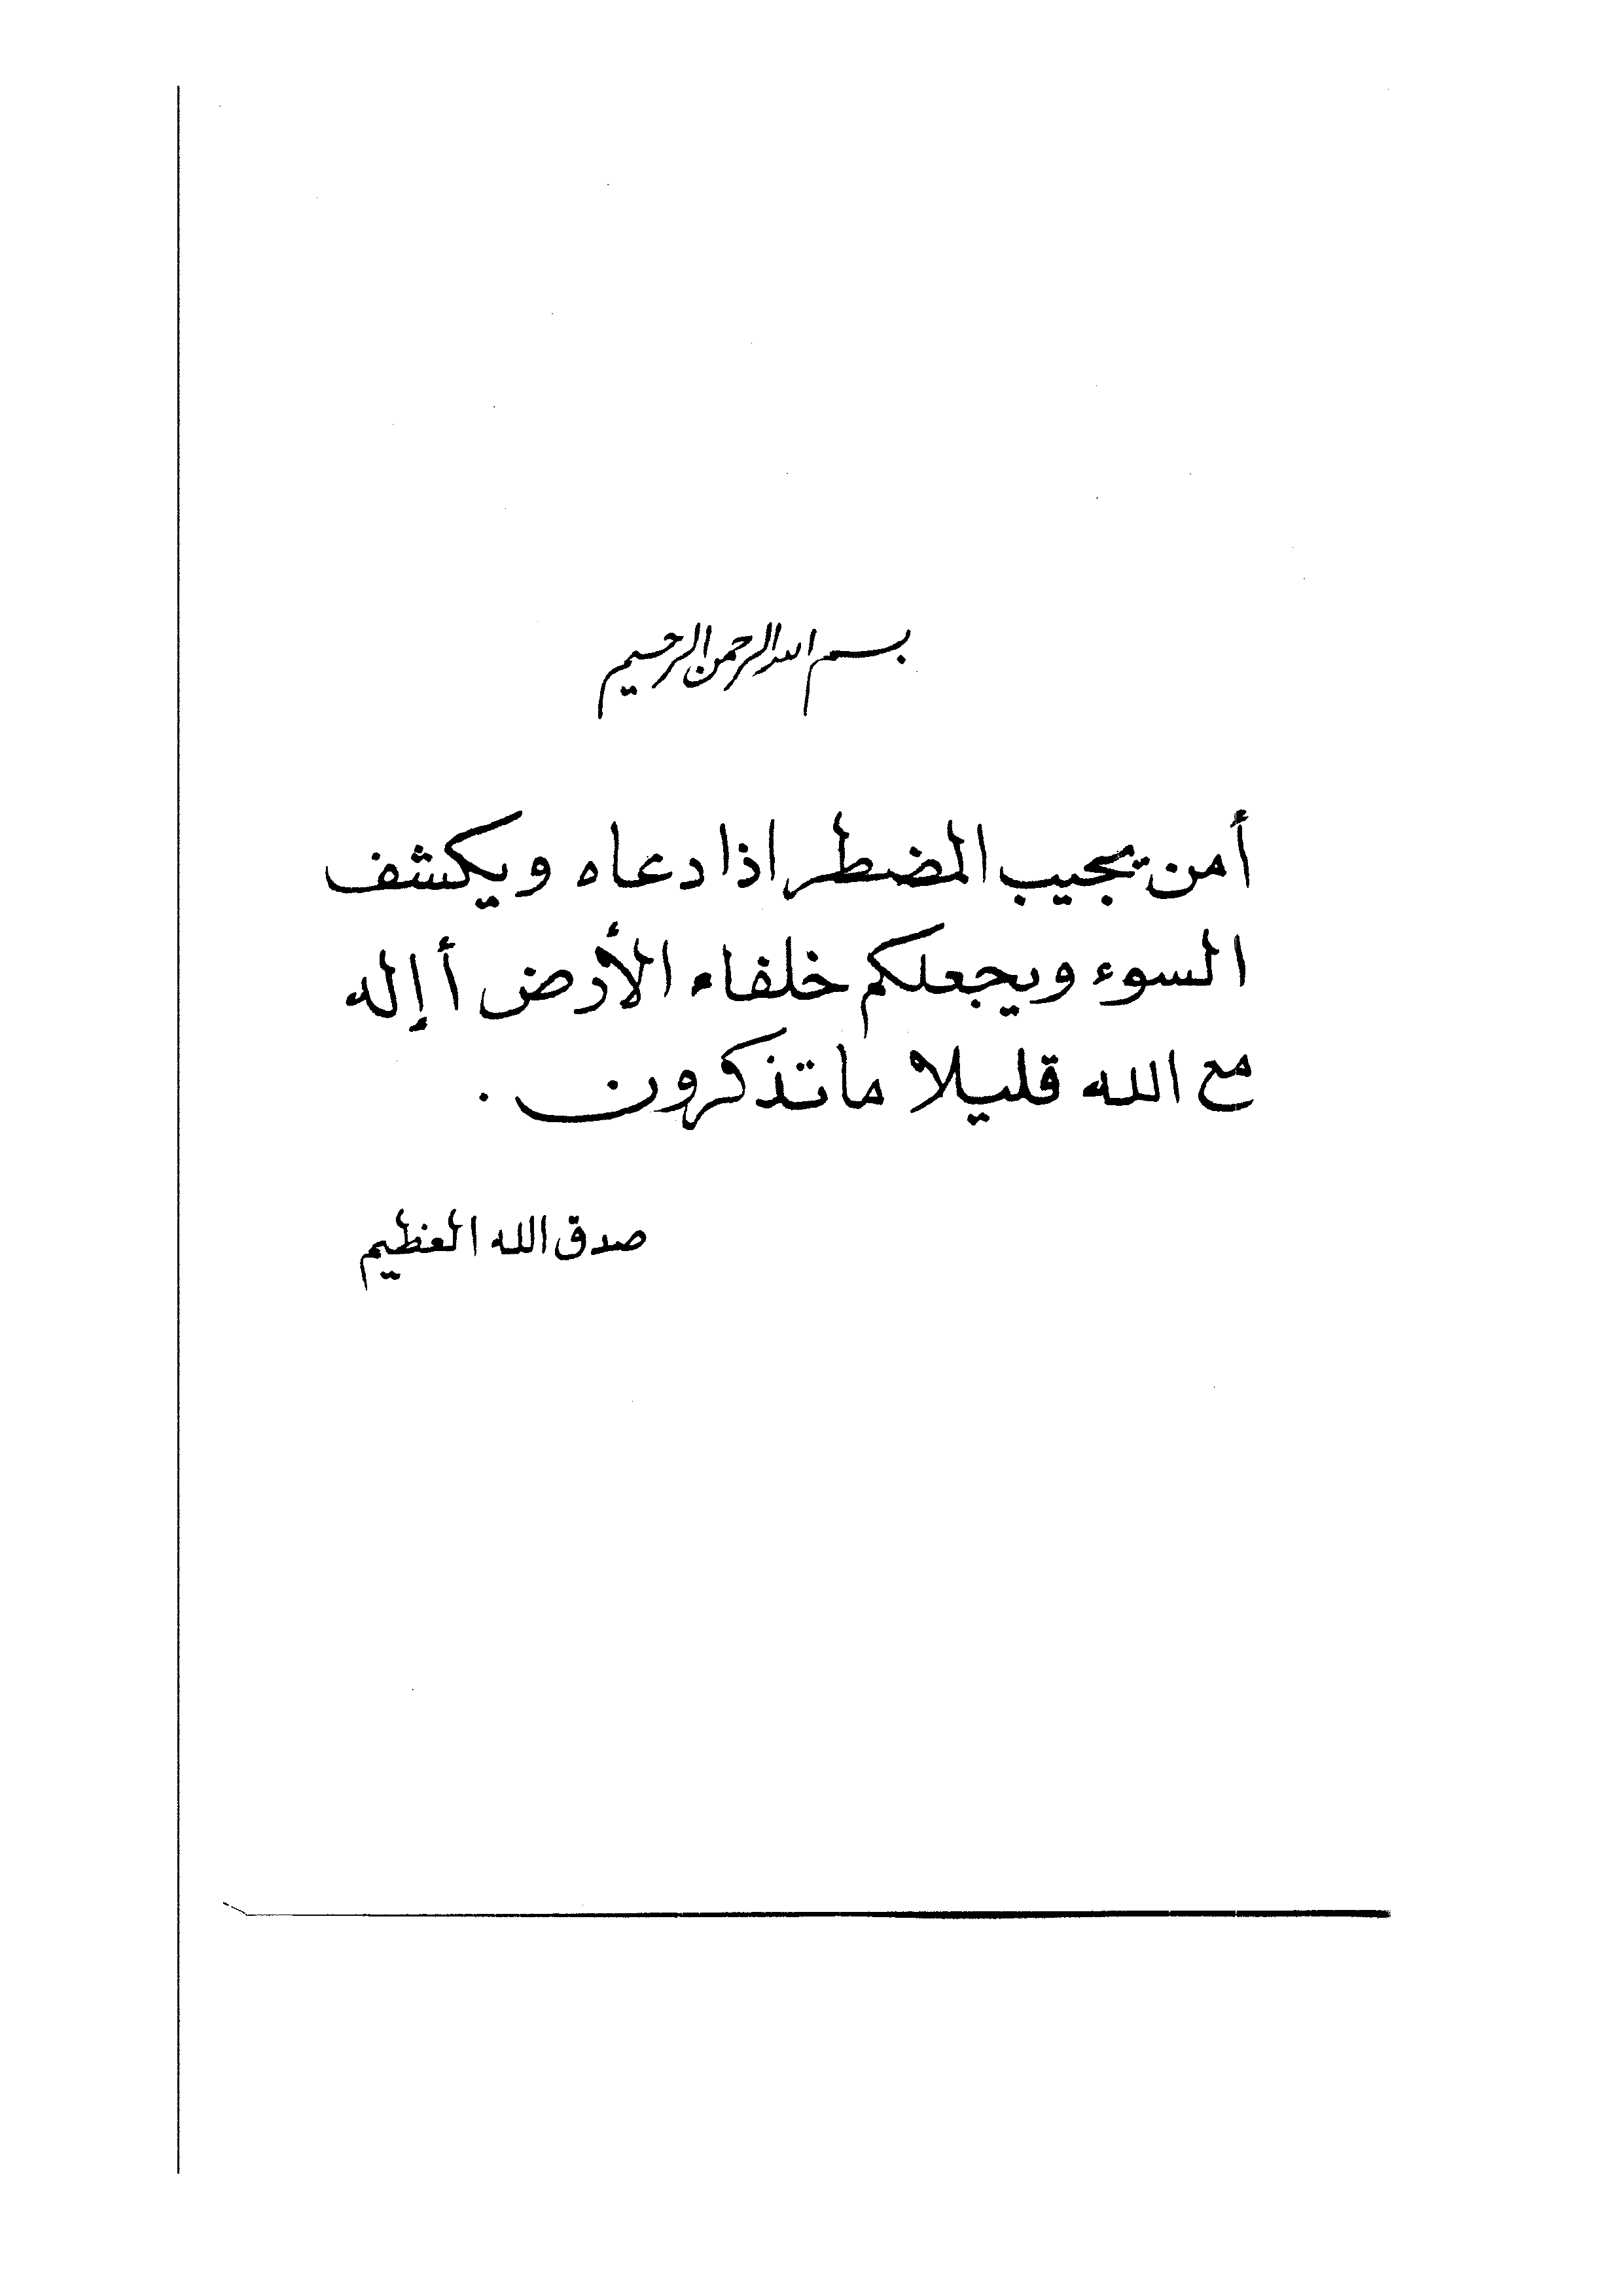 بسم الله الرحمن الرحيم
أمن يجيب المضطر اذا دعاه ويكشف
السوء ويجعلكم خلفاء الأرض أإله
مع الله قليلا ما تذكرون .
صدق الله العظيم